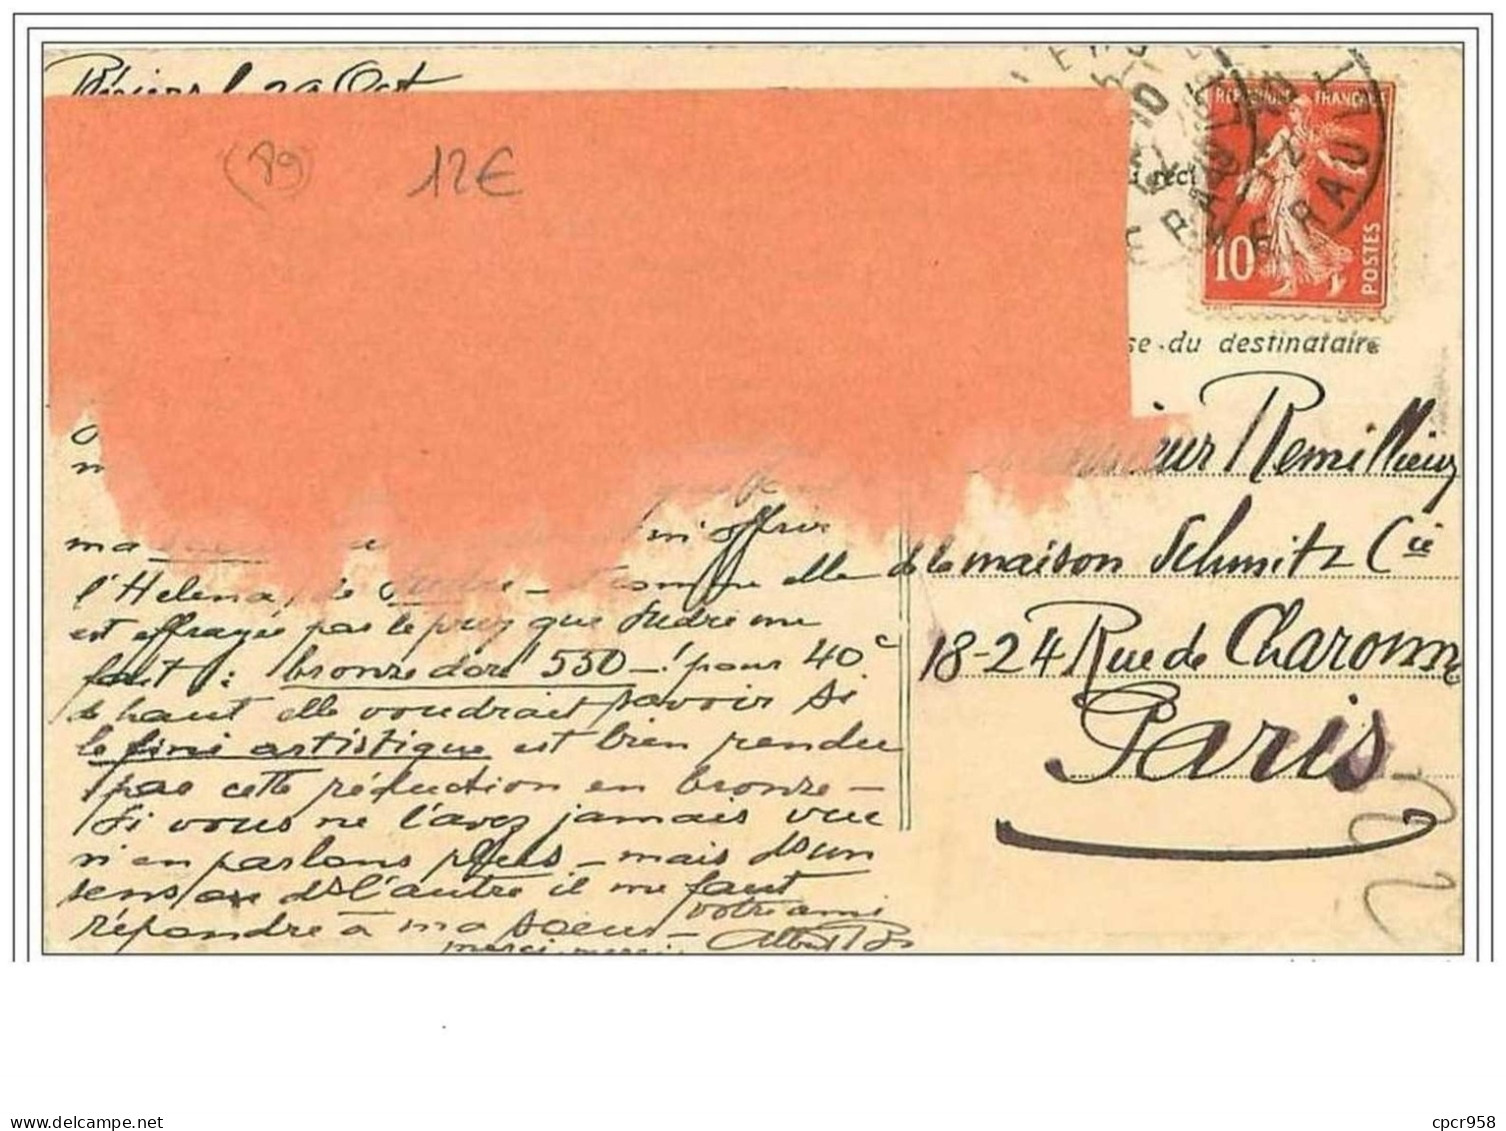 Béziers l 29 Oct
(89) 12€
REPUBLIQUE FRANÇAISE
10
POSTES
HERAULT
se du destinataire
Monsieur Remillieux
de la maison Schmitz Cie
18-24 Rue de Charonne
Paris
ma soeur lui offrir
l'Helena, de Sudre - comme elle
est effrayée par le prix que Sudre me
fait : bronze doré 550 - ! pour 40 c
de haut elle voudrait savoir si
le fini artistique est bien rendu
par cette réduction en bronze -
Si vous ne l'avez jamais vue
n'en parlons plus - mais d'un
sens ou ds l'autre il me faut
répondre à ma soeur -
votre ami
merci merci
Albert
cpcr958